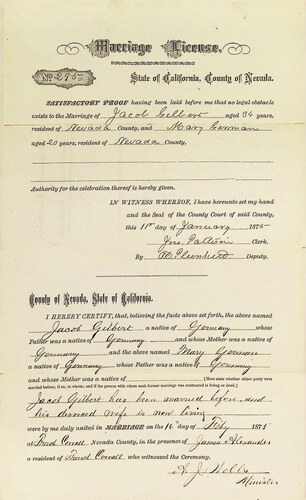 Marriage License,
No. 295
State of California, County of Nevada.
SATISFACTORY PROOF having been laid before me that no legal obstacle
exists to the Marriage of Jacob Gilbert aged 34 years,
resident of Nevada County, and Mary Gorman
aged 20 years, resident of Nevada County.
Authority for the celebration thereof is hereby given.
IN WITNESS WHEREOF, I have hereunto set my hand
and the Seal of the County Court of said County,
this 11th day of January 1875
Jno. Pattison Clerk.
By Deputy.
County of Nevada, State of California.
I HEREBY CERTIFY, that, believing the facts above set forth, the above named
Jacob Gilbert a native of Germany whose
Father was a native of Germany and whose Mother was a native of
Germany and the above named Mary Gorman
a native of Germany whose Father was a Germany
and whose Mother was a native of (Here state whether either party were
married before; if so, to whom; and if the person with whom former marriage was contracted is living or dead.)
Jacob Gilbert has been married before, and
his divorced wife is now living
were by me duly united in MARRIAGE on the 16th day of Feby 1875
at French Corral Nevada County, in the presence of James Alexander
a resident of French Corral who witnessed the Ceremony.
A. J. Wells
Minister